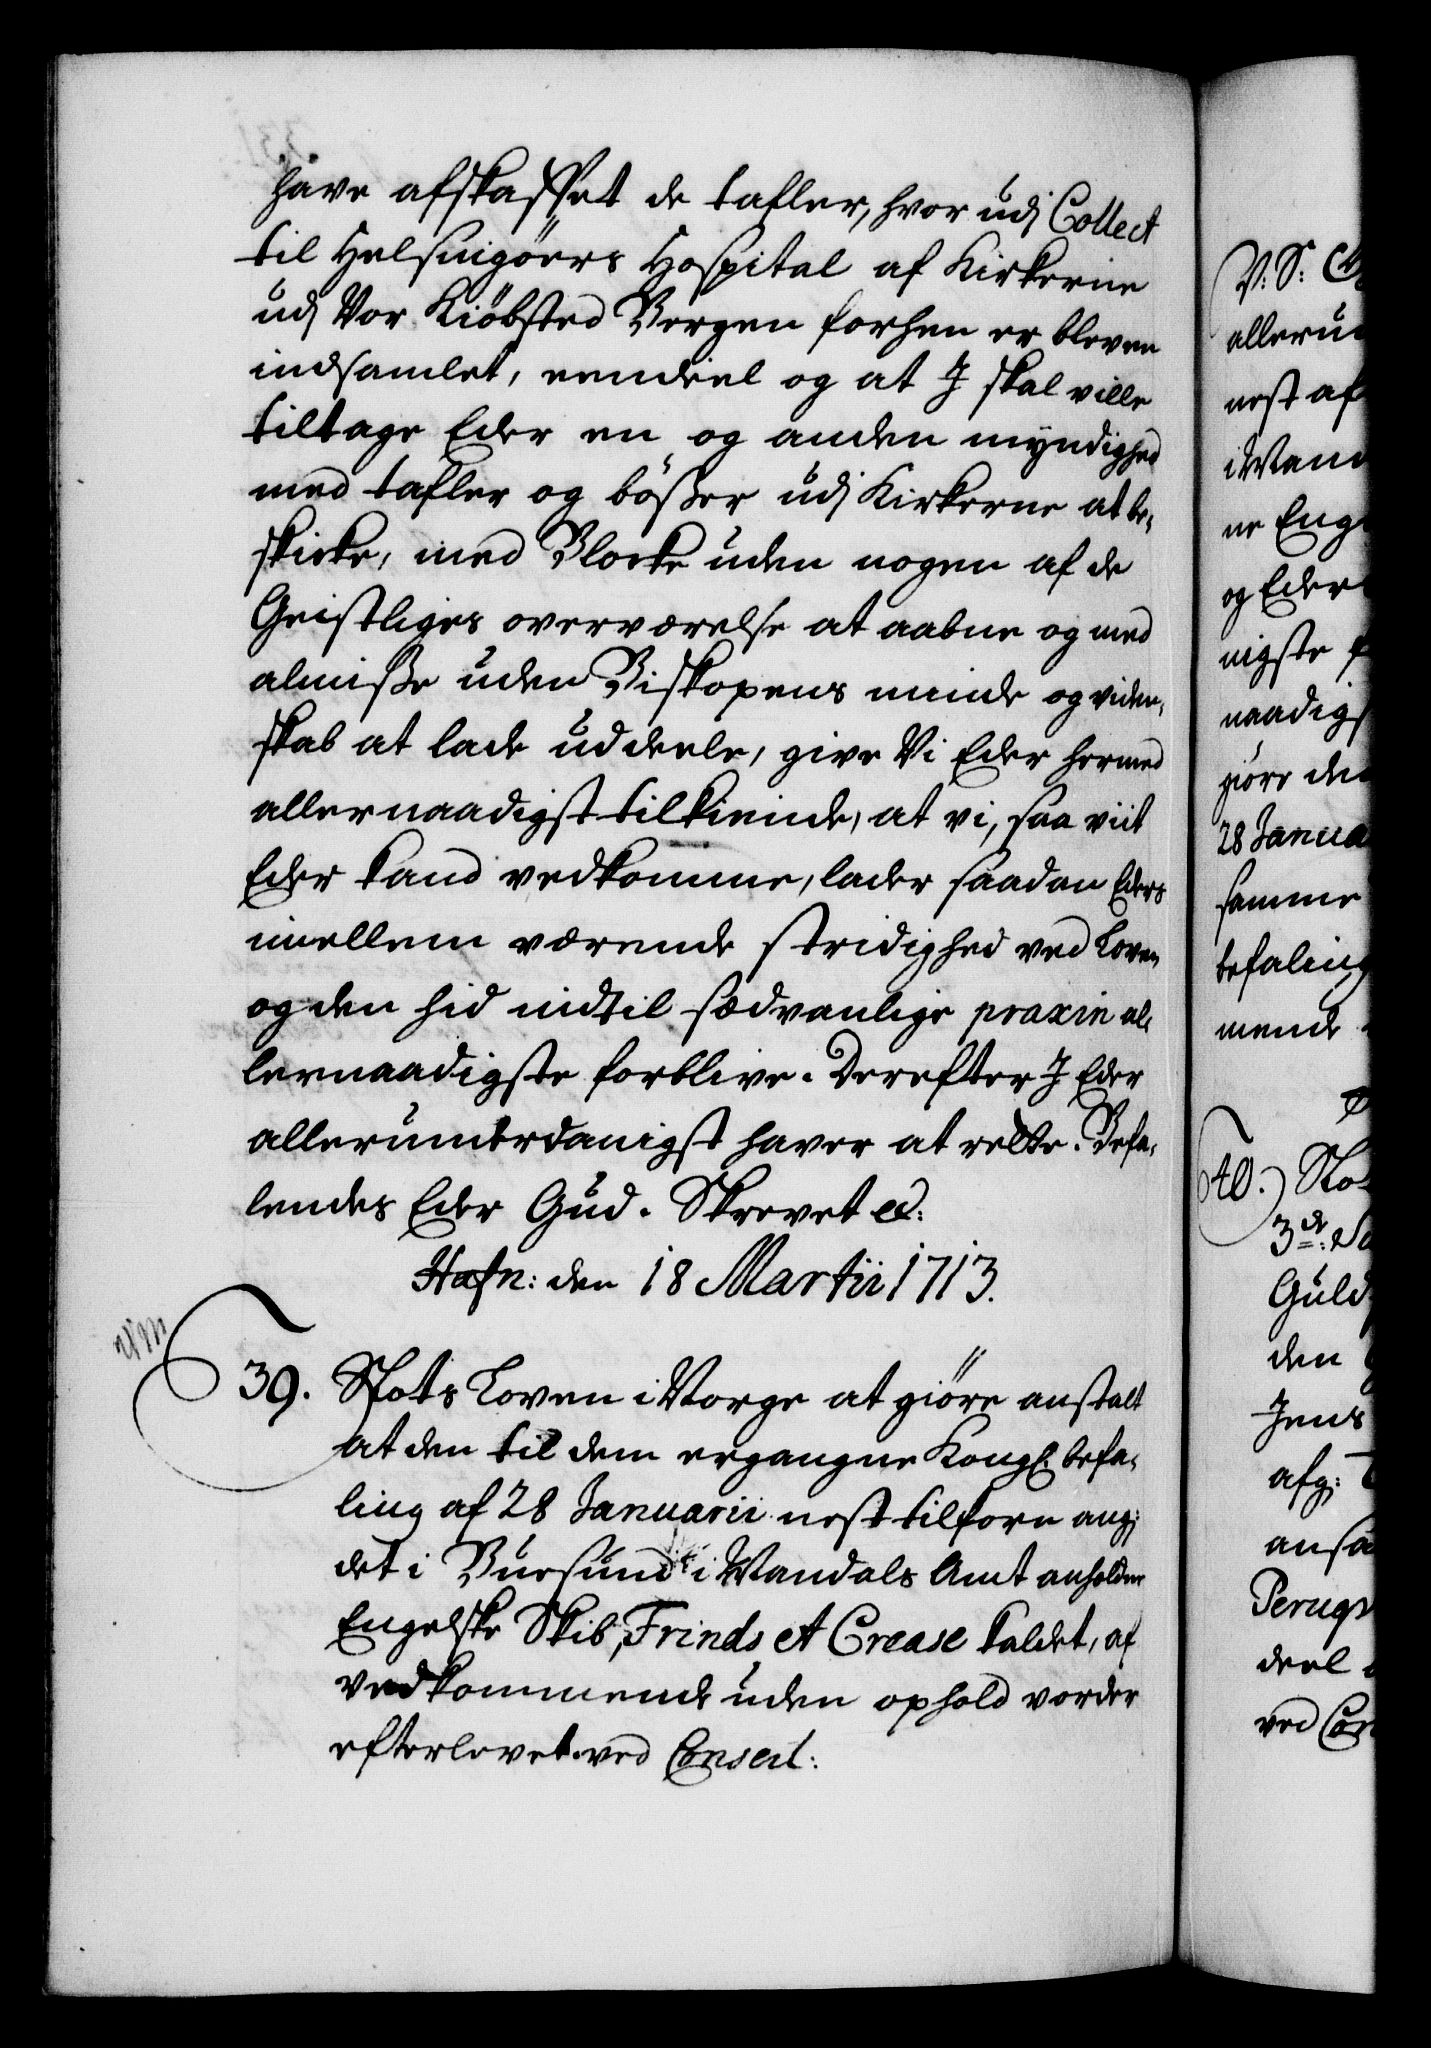 have afskaffet de tafler, hvor udj Collect
til Helsingöers Hospital af Kirkerne
udj Vor Kiöbsted Bergen forhen er bleven
indsamlet, eendeel og at J skal ville
tiltage Eder en og anden myndighed
med tafler og bößer udj Kirkerne at be-
skicke, med Blocke uden nogen af de
Geistliges overværelse at aabne og med
almiße uden Biskopens minde og viden-
skab at lade uddeele, give Vi Eder hermed
allernaadigst tilkiende, at vi, saa viit
Eder kand vedkomme, lader saadan Eders
imellem værende stridighed ved Loven
og den hid indtil sædvanlige praxin al-
lernaadigste forblive. Derefter J Eder
allerunterdanigst haver at rette. Befa-
lendes Eder Gud. Skrevet etc:
Hafn: den 18 Martii 1713.
39. Slots Loven i Norge at giöre anstalt
at den til dem ergangne Kongl. befa-
ling af 28 Januarii nest tilforn ang:
det i Buesund i Mandals Amt anholdne
Engelske Skib, Frinds et Crease kaldet, af
vedkommende uden ophold vorder
efterlevet. ved Conseil:
V: S:
nest af
ne
og Eder
nigste
giöre
28 Janua
samme
befaling
mende
40.
3de:
Guld
den
Jens
afg:
deel
ved